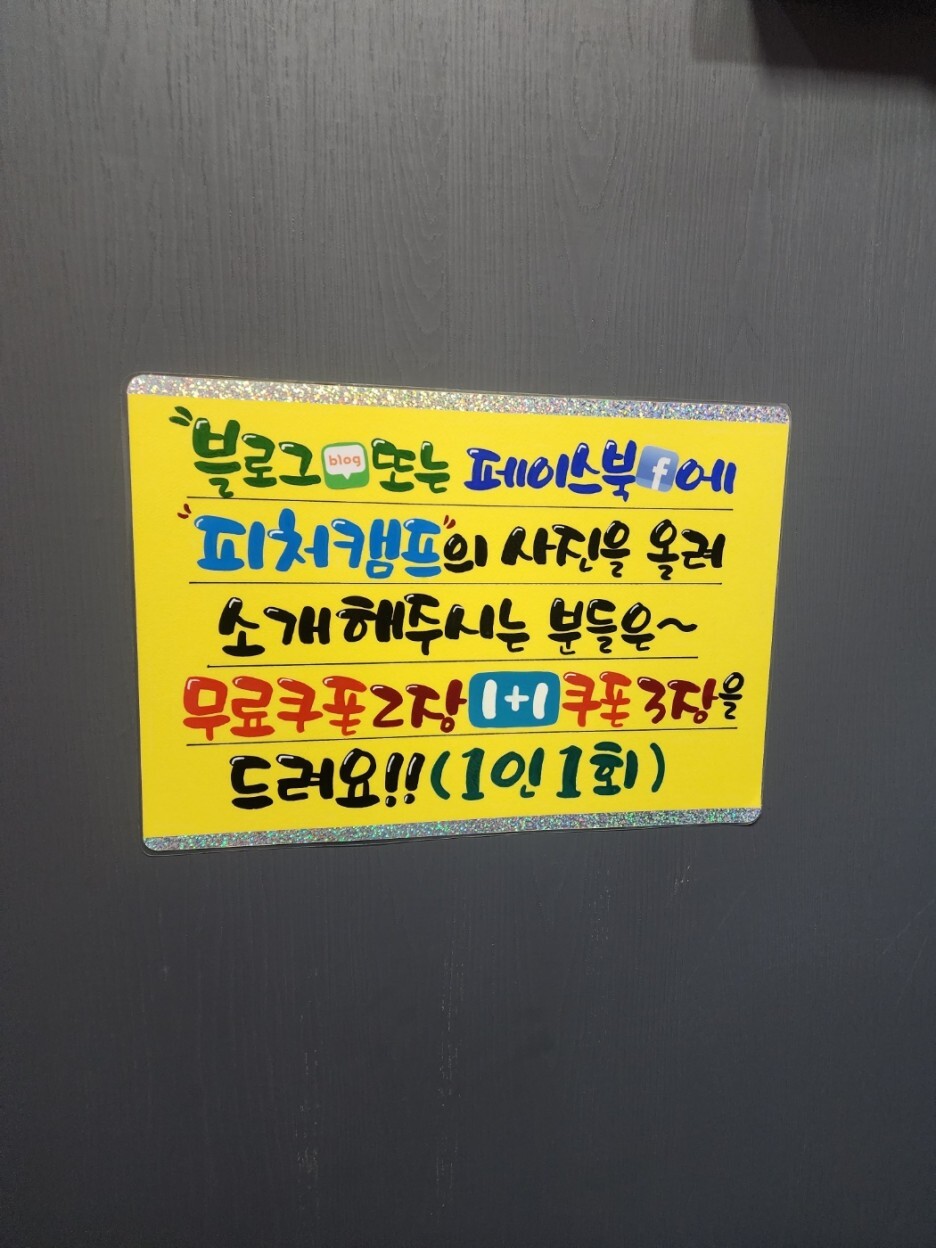 "블로그 blog 또는 페이스북 f에
"피처캠프"의 사진을 올려
소개해주시는 분들은~
무료쿠폰2장 1+1 쿠폰 3장을
드려요!! (1인 1회)